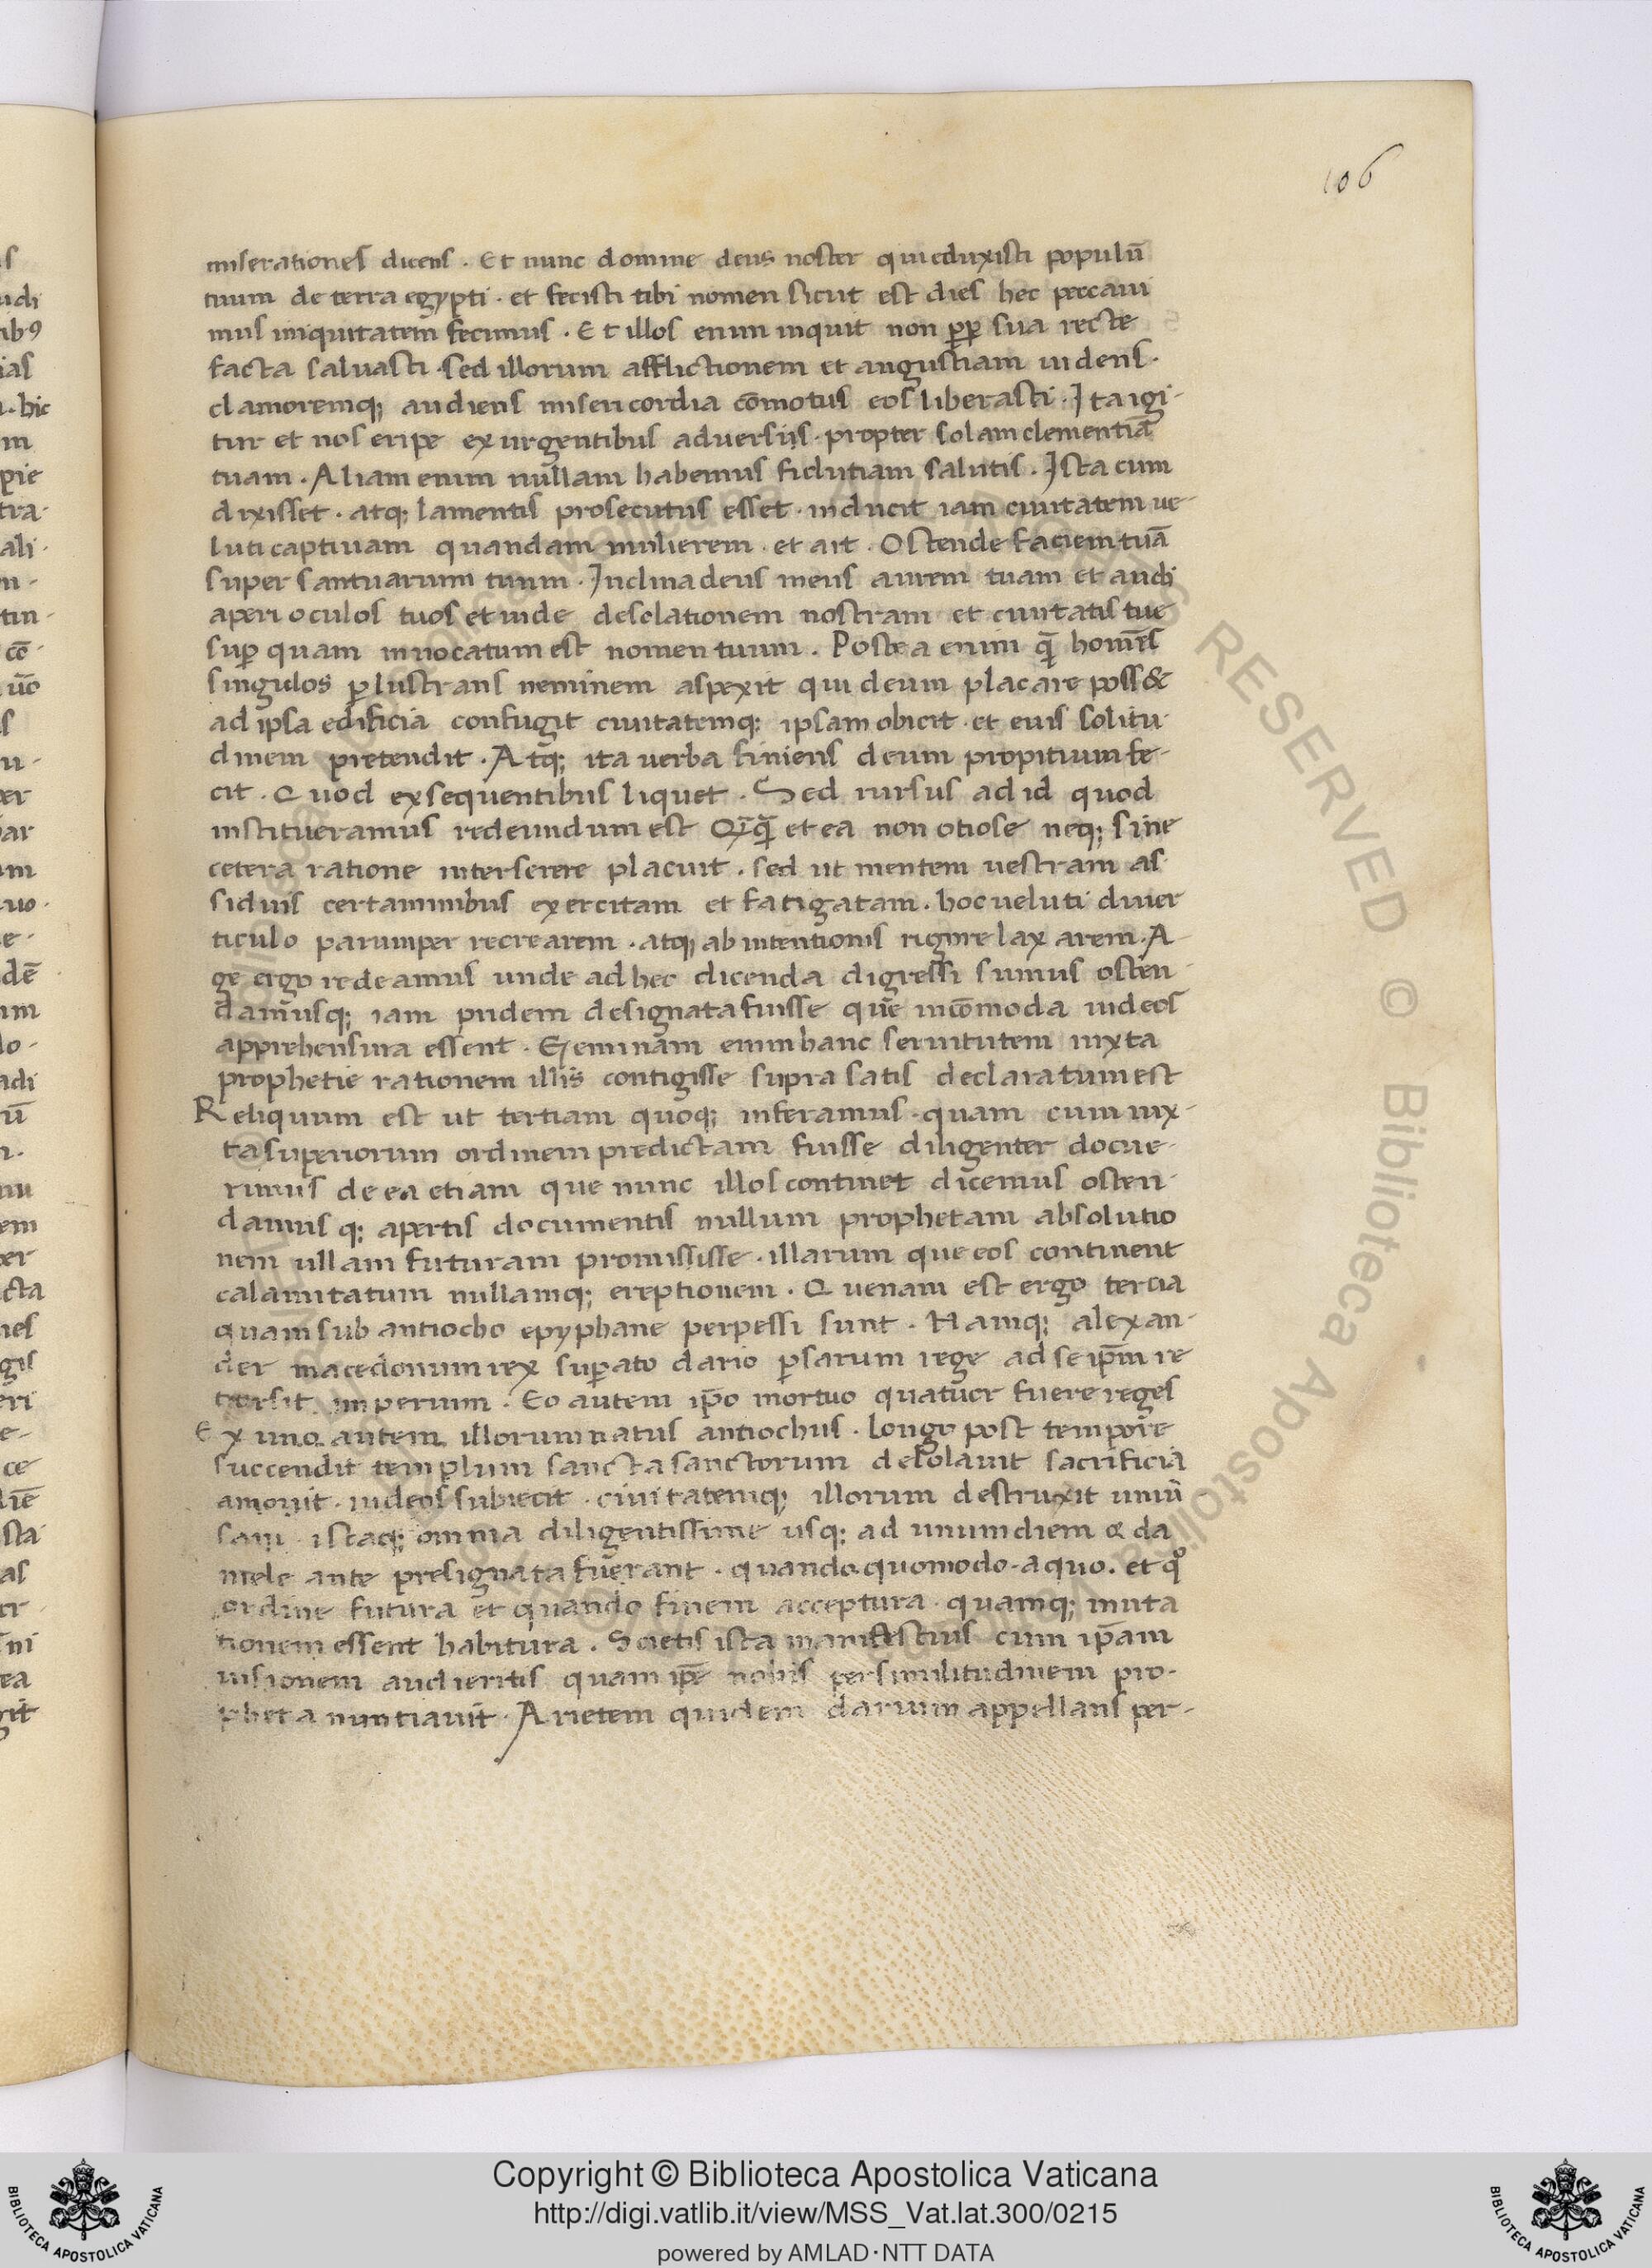 106
miserationes dicens . Et nunc domine deus noster qui eduxisti populū
tuum de terra egypti . et fecisti tibi nomen sicut est dies hec peccaui
mus iniquitatem fecimus . Et illos enim inquit non ꝓp̄ sua recte
facta saluasti . sed illorum afflictionem et angustiam uidens .
clamoremq; audiens misericordia cōmotus eos liberasti . Ita igi-
tur et nos eripe ex urgentibus aduersiis . propter solam clementiā
tuam . Aliam enim nullam habemus fidutiam salutis . Ista cum
dixisset . atq; lamentis prosecutus esset . inducit iam ciuitatem ue-
luti captiuam quandam mulierem . et ait . Ostende faciem tuā
super santuarium tuum . Inclina deus meus aurem tuam et audi
aperi oculos tuos et uide desolationem nostram et ciuitatis tue
suꝑ quam inuocatum est nomen tuum . Postea enim q̄ homīes
singulos ꝑlustrans neminem aspexit qui deum placare poss&
ad ipsa edificia confugit ciuitatemq; ipsam obicit . et euis solitu-
dinem pretendit . Atq; ita uerba finiens deum propitium fe-
cit . Quod ex sequentibus liquet . Sed rursus ad id quod
institueramus redeundum est Qīq̄ et ea non otiose neq; sine
cetera ratione interserere placuit . sed ut mentem uestram as-
siduis certaminibus exercitam et fatigatam . hoc ueluti diuer
ticulo parumper recrearem . atq; ab intentionis rigore laxarem . A-
ge ergo redeamus unde ad hec dicenda digressi sumus osten-
damusq; iam pridem designata fuisse que incōmoda iudeos
apprehensura essent . Geminam enim hanc seruitutem iuxta
prophetie rationem illis contigisse supra satis declaratum est
Reliquum est ut tertiam quoq; inferamus . quam cum iux-
ta superiorum ordinem predictam fuisse diligenter docue-
rimus de ea etiam que nunc illos continet dicemus osten-
damus q; apertis documentis nullum prophetam absolutio
nem ullam futuram promississe . illarum que eos continent
calamitatum nullamq; ereptionem . Quenam est ergo tercia
quam sub antiocho epyphane perpessi sunt . Namq; alexan-
der macedonum rex suꝑato dario ꝑsarum rege ad se ip̄m re
tursit imperium . Eo autem ip̄o mortuo quatuor fuere reges
Ex uno autem illorum natus antiochus . longo post tempore
succendit templum sancta sanctorum desolauit sacrificia
amouit . iudeos subiecit . ciuitatemq; illorum destruxit uniū
sam . istaq; omnia diligentissime usq; ad unum diem a da
niele ante presignata fuerant . quando . quomodo . a quo . et qͦ
ordine futura et quando finem acceptura . quamq; muta
tionem essent habitura . Scietis ista manifestius cum ip̄am
uisionem audieritis quam ip̄e nobis per similitudinem pro-
pheta nuntiauit . Arietem quidem darium appellans per-
Copyright © Biblioteca Apostolica Vaticana
http://digi.vatlib.it/view/MSS_Vat.lat.300/0215
powered by AMLAD·NTT DATA